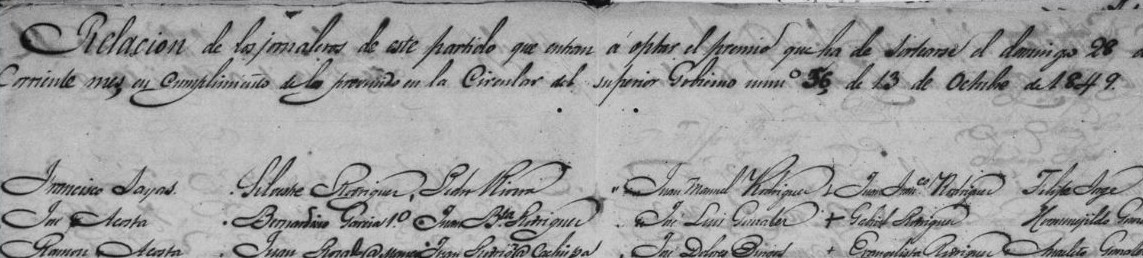 Relacion de los jornaleros de este partido que entran á optar el premio que ha de sortearse el domingo 28 
Corriente mes en Cumplimiento de lo prevenido en la Circular del superior Gobierno num.º 36 de 13 de Octubre de 1849.
Francisco Sayas. Silvestre Rodriguez. Pedro Rivera Juan Manuel Rodriguez + Juan Fran.co Rodriguez Felipe
Acosta Bernardino Garcia 1.º Juan B.ta Rodriguez Luis Gonzalez + Gabriel Rodriguez
Ramon Acosta Juan Juan Dolores Evangelista Rodriguez